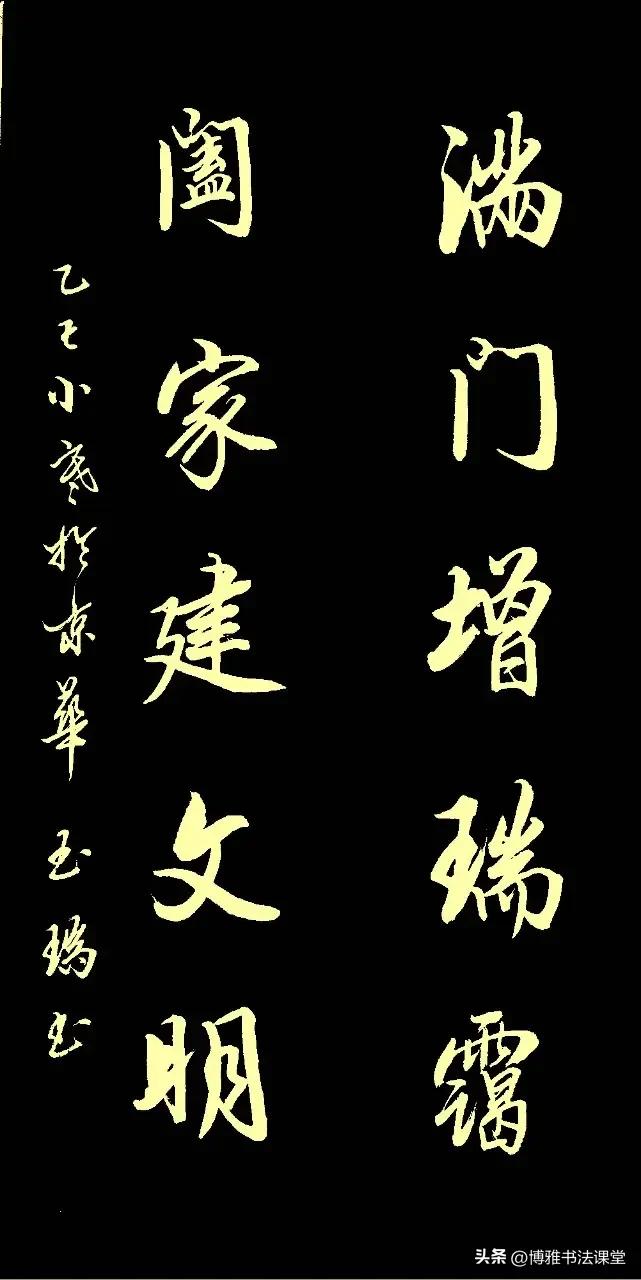 满门增瑞霭
阖家建文明
乙巳小寒於京華 玉瑞书
头条 @博雅书法课堂